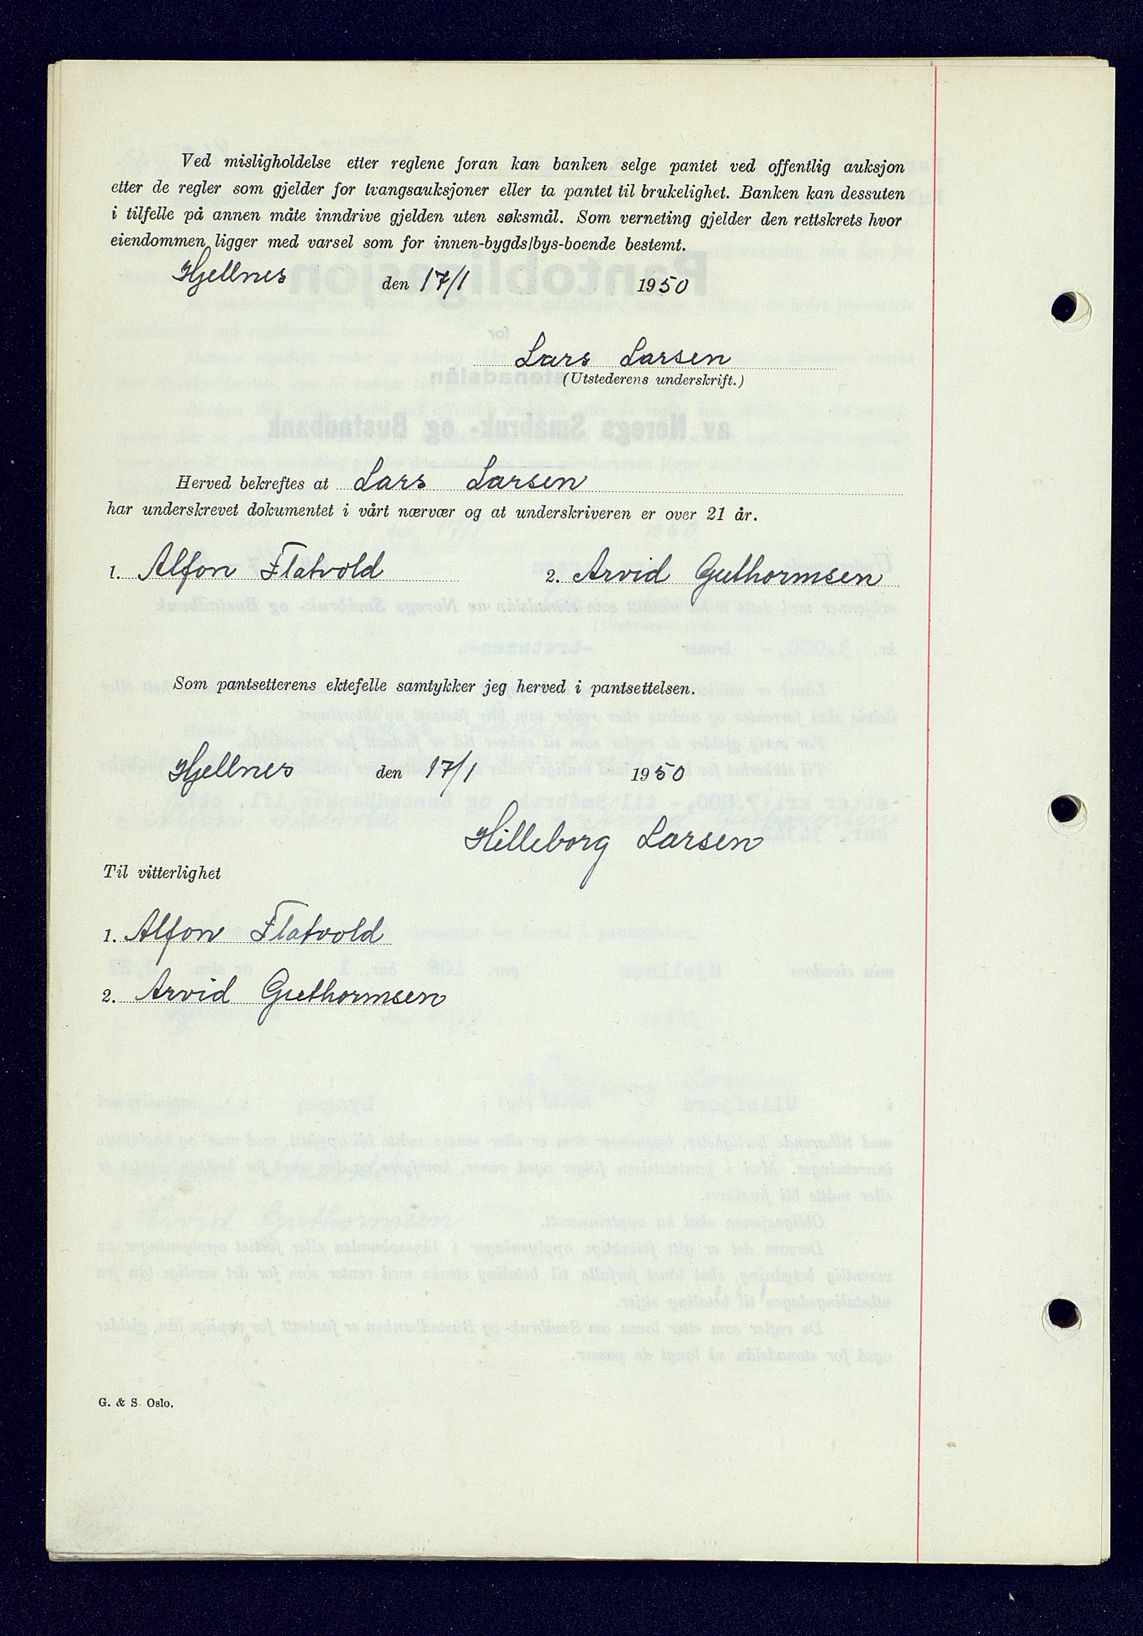 Ved misligholdelse etter reglene foran kan banken selge pantet ved offentlig auksjon
etter de regler som gjelder for tvangsauksjoner eller ta pantet til brukelighet. Banken kan dessuten
i tilfelle på annen måte inndrive gjelden uten søksmål. Som verneting gjelder den rettskrets hvor
eiendommen ligger med varsel som for innen-bygds/bys-boende bestemt.
Hjellnes den 17/1 1950
Lars Larsen
(Utstederens underskrift.)
Herved bekreftes at Lars Larsen
har underskrevet dokumentet i vårt nærvær og at underskriveren er over 21 år.
1. Alfon Flatvold 2. Arvid Guthormsen
Som pantsetterens ektefelle samtykker jeg herved i pantsettelsen.
Hjellnes den 17/1 1950
Hilleborg Larsen
Til vitterlighet
1. Alfon Flatvold
2. Arvid Guthormsen
G. & S. Oslo.